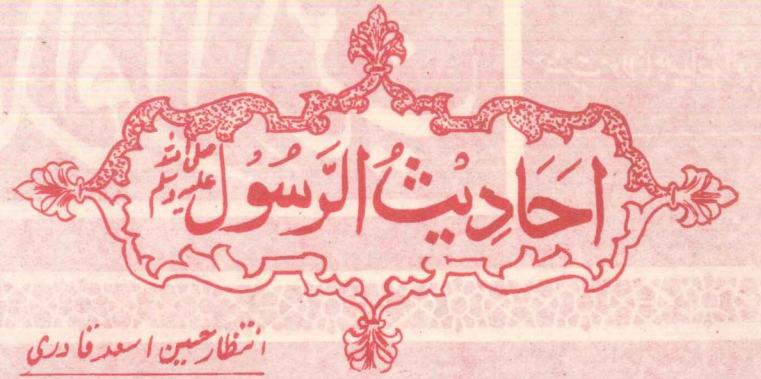 اَحَادِیْثُ الرَّسُوْل صلی اللہ علیہ وسلم
انتظار حسین اسعد قادری